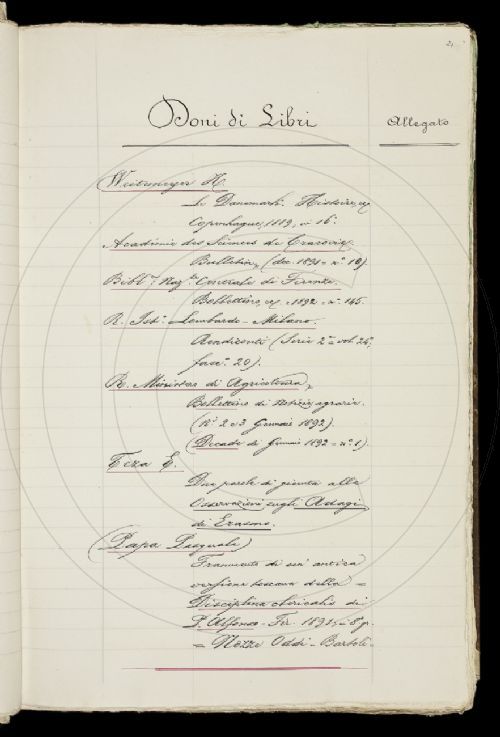 21
Doni di Libri
Allegato
(Weitemeyer H.
Le Danemark. Histoire, ec
Copenhague, 1889, in 16°.
Académie des Sciences de Cracovie.
Bulletin, (dec. 1891 = n.° 10).
Bibl.ca Naz.le Centrale di Firenze.
Bollettino, ec. = 1892 = n.° 145.
R. Ist.° Lombardo - Milano.
Rendiconti (Serie 2.a = vol. 24°,
fasc.° 20).
R. Ministero di Agricoltura,
Bollettino di Notizie agrarie.
(N.i 2 e 3 Gennaio 1892).
(Decade di Gennaio 1892 = n.° 1).
Teza E.
Due parole di giunta alle
Osservazioni sugli Adagi
di Erasmo.
(Papa Pasquale)
Frammento di un' antica
versione toscana della =
Disciplina clericalis di
P. Alfonso - Fir. 1891, in 8° gr.
= Nozze Oddi - Bartoli -